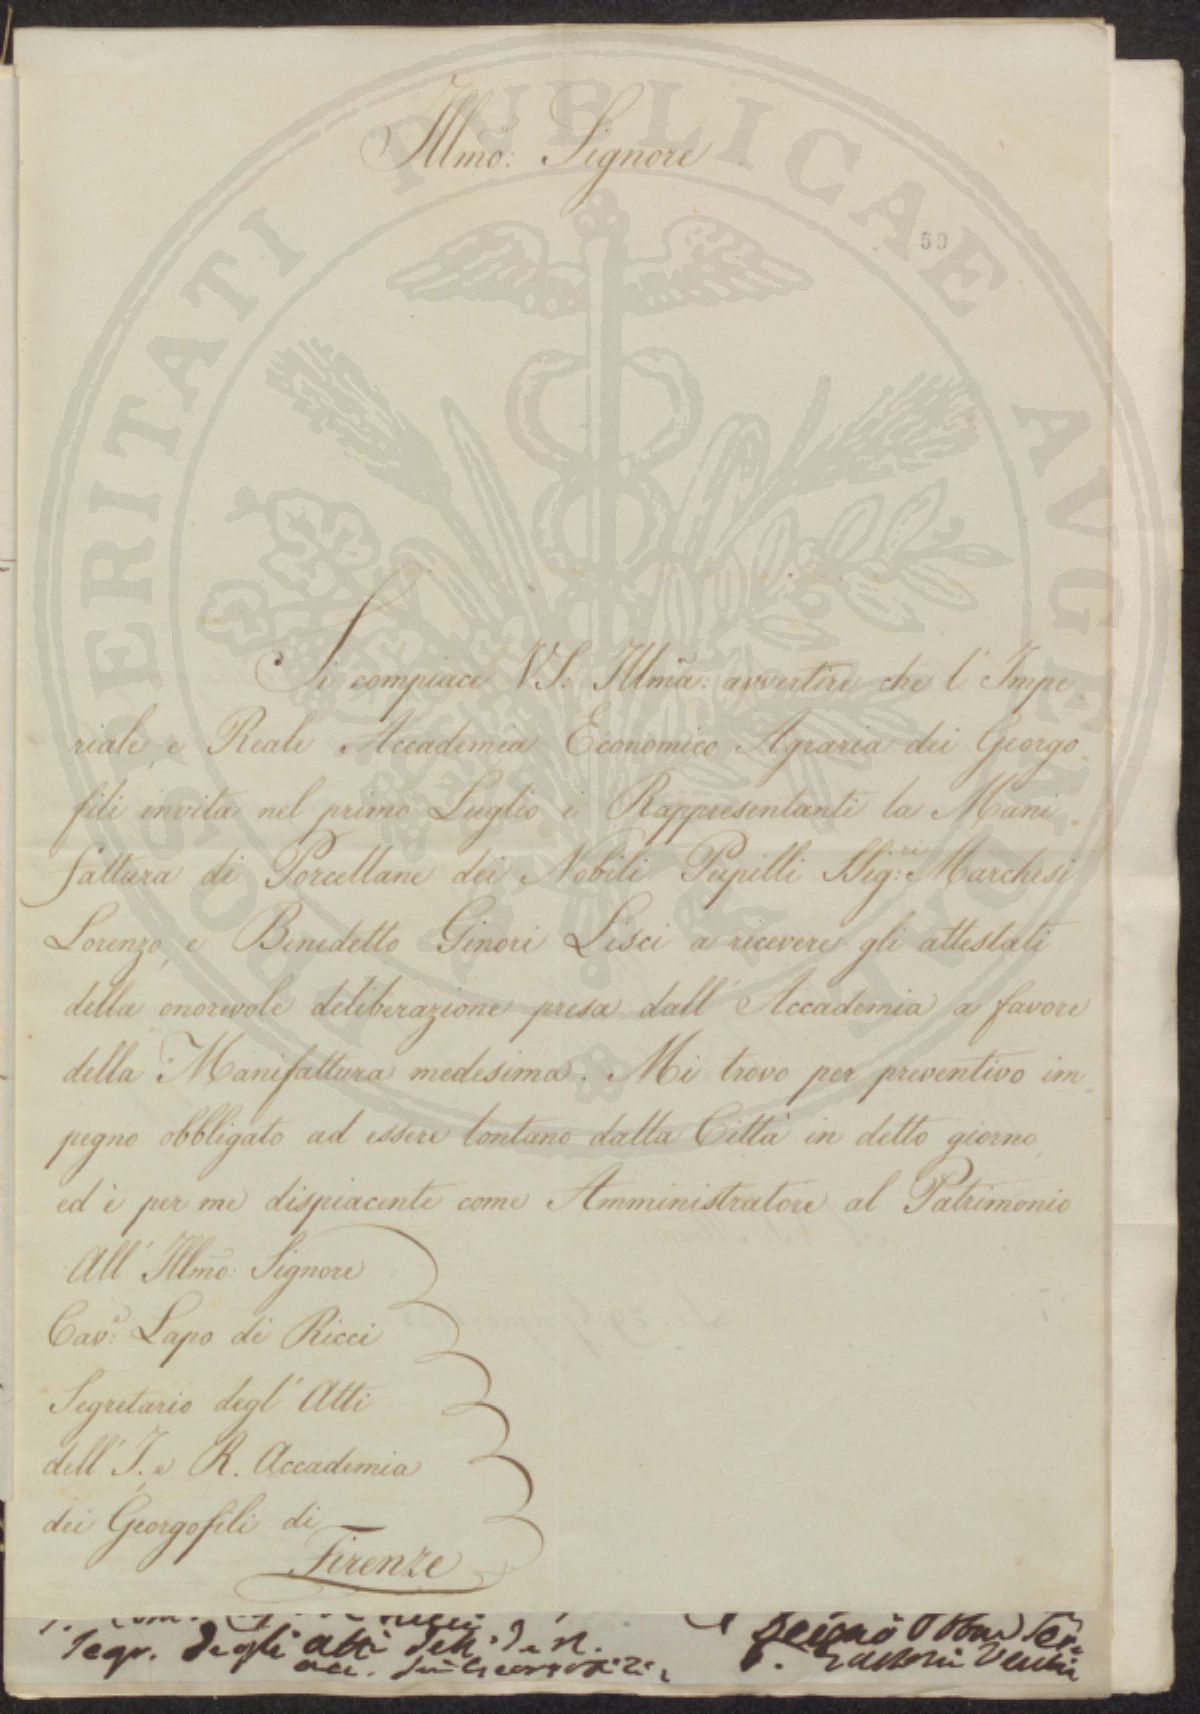 Illmo: Signore
59
Si compiace VS: Illma: avvertire che l'Impe-
riale, e Reale Accademia Economico Agraria dei Georgo-
fili invita nel primo Luglio i Rappresentanti la Mani-
fattura di Porcellane dei Nobili Pupilli SSig:ri Marchesi
Lorenzo, e Benedetto Ginori Lisci a ricevere gli attestati
della onorevole deliberazione presa dall'Accademia a favore
della Manifattura medesima. Mi trovo per preventivo im-
pegno obbligato ad essere lontano dalla Città in detto giorno,
ed è per me dispiacente come Amministratore al Patrimonio
All'Illmo: Signore
Cav:e Lapo de Ricci
Segretario degl'Atti
dell'I. e R. Accademia
dei Georgofili di
Firenze
Segr. degli atti dell'I. e R.
PROSPERITATI PUBLICAE AUGENDAE